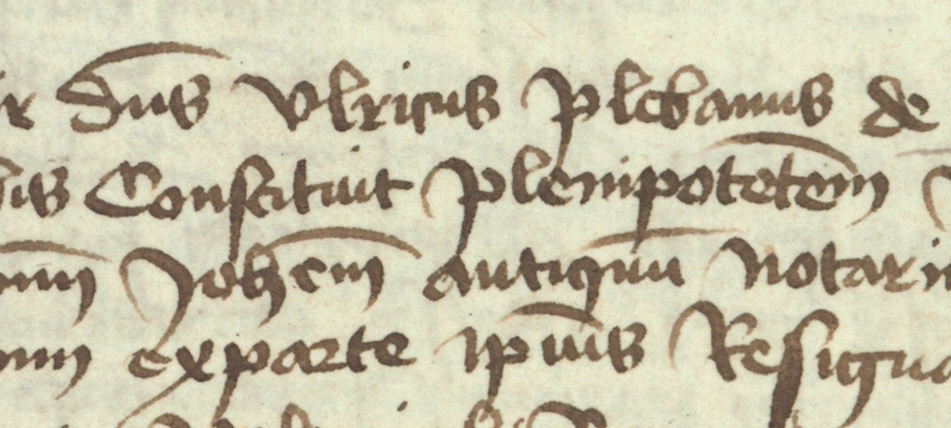 dns vlricus plebanus de
Constituit plenipotetem
Johem antiquu notari
exparte ipius Resigna